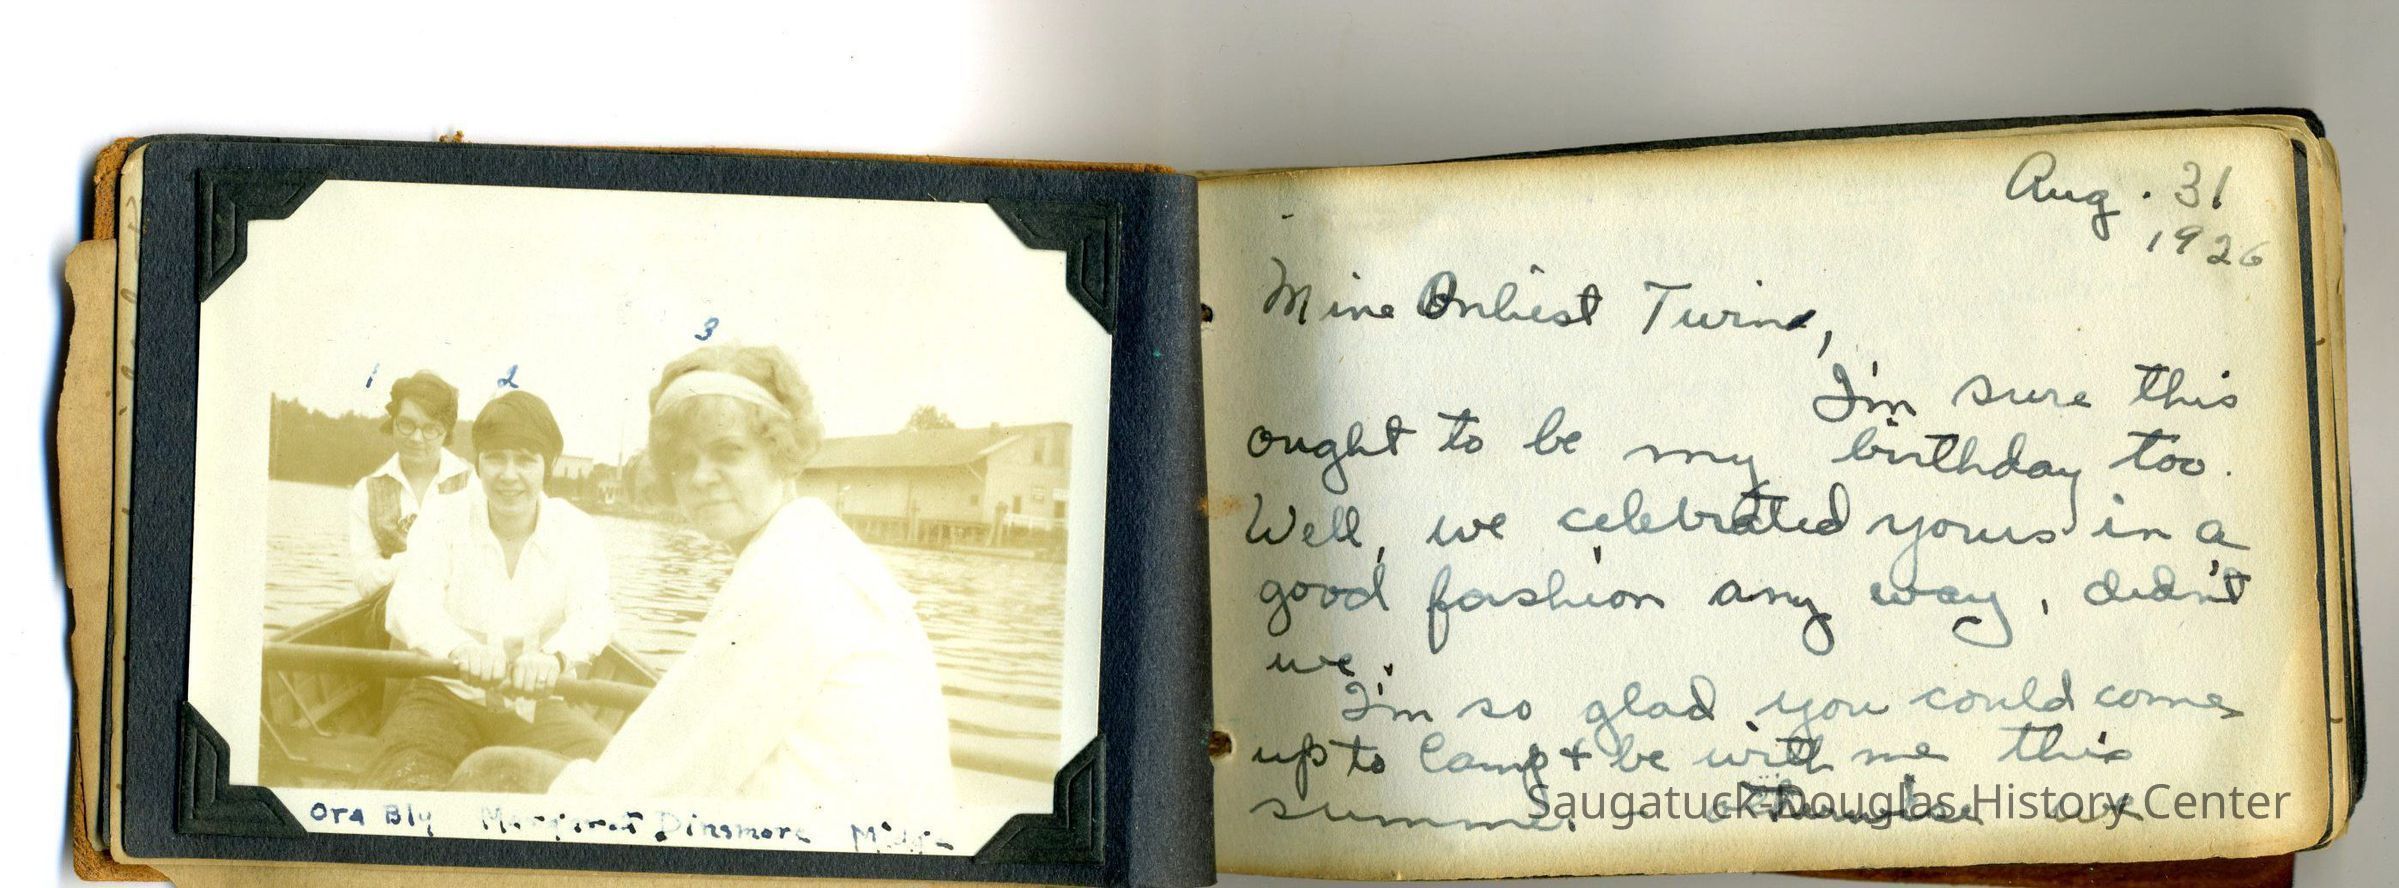 1
2
3
Ora Bly Margaret Dinsmore
Aug. 31
1926
Mine Onliest Twin,
I'm sure this
ought to be my birthday too.
Well, we celebrated yours in a
good fashion any way, didn't
we.
I'm so glad you could come
up to Camp + be with me this
summer. - otherwise we
Saugatuck-Douglas History Center